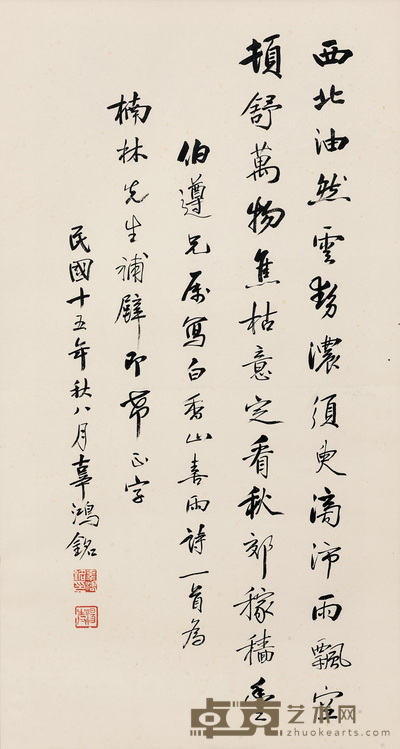 西北油然雲勢濃須臾滂沛雨飄空
頓舒萬物焦枯意定看秋郊稼穡豐
伯遵兄属寫白香山喜雨詩一首為
楠林先生補壁即希正字
民國十五年秋八月辜鴻銘
卓克艺术网
zhuokearts.com